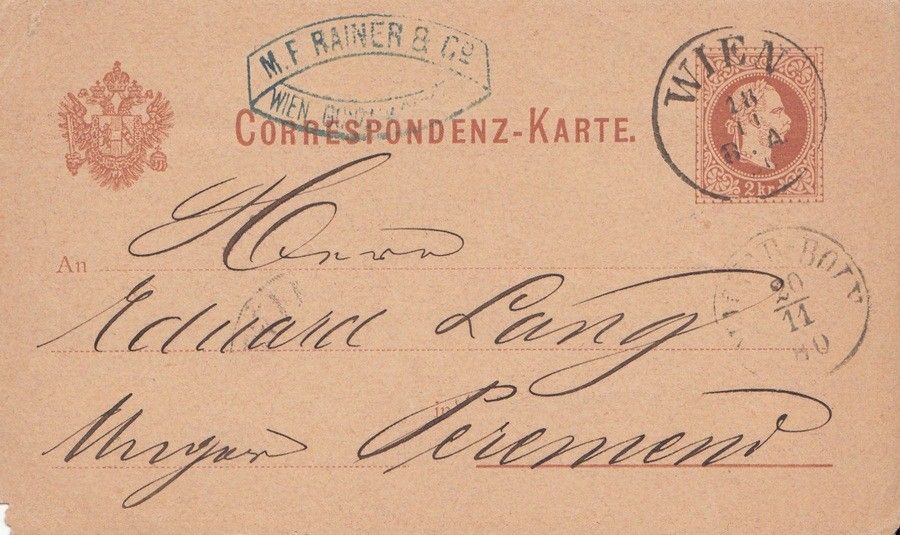 M.F. RAINER & Co
WIEN
CORRESPONDENZ-KARTE.
WIEN
18
11
8. A
2 kr.
An Herrn
Eduard Lang
in Peremend
Ungarn
BOLY
20
11
80